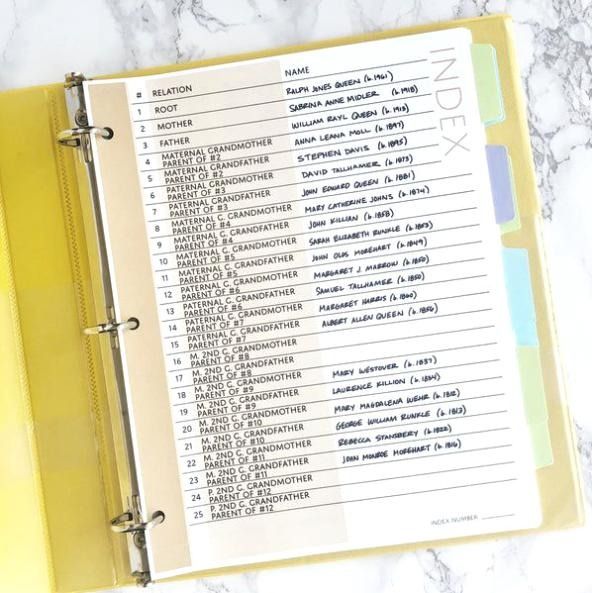 INDEX
# RELATION NAME
1 ROOT RALPH JONES QUEEN (b.1961)
2 MOTHER SABRINA ANNE MIDLER (b.1918)
3 FATHER WILLIAM RAYL QUEEN (b.1913)
4 MATERNAL GRANDMOTHER ANNA LEANA MOLL (b.1897)
PARENT OF #2
5 MATERNAL GRANDFATHER STEPHEN DAVIS (b.1895)
PARENT OF #2
6 PATERNAL GRANDMOTHER DAVID TALLHAMER (b.1873)
PARENT OF #3
7 PATERNAL GRANDFATHER JOHN EDWARD QUEEN (b.1881)
PARENT OF #3
8 MATERNAL G. GRANDMOTHER MARY CATHERINE JOHNS (b.1874)
PARENT OF #4
9 MATERNAL G. GRANDFATHER JOHN KILLIAN (b.1858)
PARENT OF #4
10 MATERNAL G. GRANDMOTHER SARAH ELIZABETH RUNKLE (b.1853)
PARENT OF #5
11 MATERNAL G. GRANDFATHER JOHN OLDS MOREHART (b.1849)
PARENT OF #5
12 PATERNAL G. GRANDMOTHER MARGARET J. MARROW (b.1850)
PARENT OF #6
13 PATERNAL G. GRANDFATHER SAMUEL TALLHAMER (b.1850)
PARENT OF #6
14 PATERNAL G. GRANDMOTHER MARGARET HARRIS (b.1860)
PARENT OF #7
15 PATERNAL G. GRANDFATHER ALBERT ALLEN QUEEN (b.1856)
PARENT OF #7
16 M. 2ND G. GRANDMOTHER
PARENT OF #8
17 M. 2ND G. GRANDFATHER
PARENT OF #8
18 M. 2ND G. GRANDMOTHER MARY WESTOVER (b.1837)
PARENT OF #9
19 M. 2ND G. GRANDFATHER LAURENCE KILLION (b.1834)
PARENT OF #9
20 M. 2ND G. GRANDMOTHER MARY MAGDALENA WEHR (b.1812)
PARENT OF #10
21 M. 2ND G. GRANDFATHER GEORGE WILLIAM RUNKLE (b.1813)
PARENT OF #10
22 M. 2ND G. GRANDMOTHER REBECCA STANSBERY (b.1822)
PARENT OF #11
23 M. 2ND G. GRANDFATHER JOHN MONROE MOREHART (b.1816)
PARENT OF #11
24 P. 2ND G. GRANDMOTHER
PARENT OF #12
25 P. 2ND G. GRANDFATHER
PARENT OF #12
INDEX NUMBER